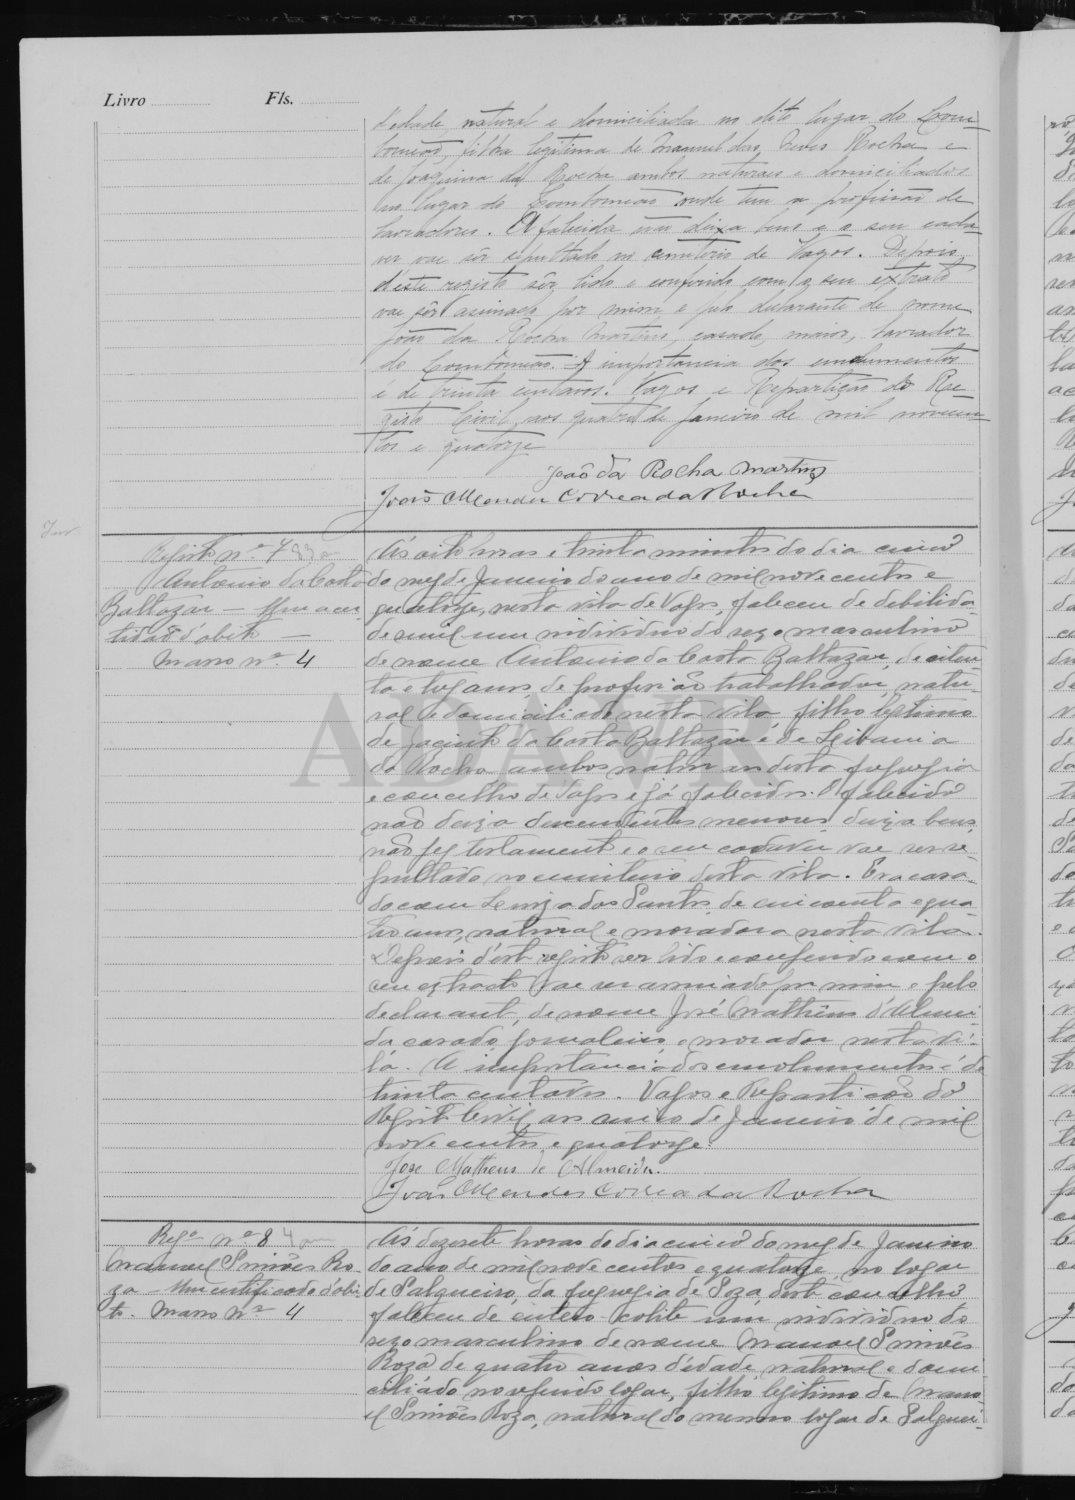 Livro Fls.
d'edade, natural e domiciliada no dito lugar do Lom-
bomeão, filha legitima de Manuel das Neves Rocha e
de Joaquina da Rocha ambos naturais e domiciliados
no lugar do Lombomeão onde tem a profissão de
lavradores. A falecida não deixa bens e o seu cada-
ver vae sêr sepultado no cemiterio de Vagos. Depois
d'este registo sêr lido e conferido com o seu extrato
vae sêr assinado por mim e pelo declarante de nome
João da Rocha Martins, casado, maior, lavrador
do Lombomeão. A importancia dos emolumentos
é de trinta centavos. Vagos e Repartição do Re-
gisto Civil, aos quatro de Janeiro de mil novecen-
tos e quatorze
João da Rocha Martins
João Mendes Correa da Rocha
Registo nº 7
Antonio da Costa
Baltazar — Uma cer-
tidão d'obito —
Maço nº 4
Ás oito horas e trinta minutos do dia cinco
do mez de Janeiro do ano de mil nove centos e
quatorze, nesta vila de Vagos, faleceu de debilida-
de senil um individuo do sexo masculino
de nome Antonio da Costa Baltazar, de oiten-
ta e tres anos, de profissão trabalhador, natu-
ral e domiciliado nesta vila, filho legitimo
de Jacinto da Costa Baltazar e de
da Rocha ambos naturais desta freguesia
e concelho de Vagos e já falecidos. O falecido
não deixa descendentes menores, deixa bens,
não fez testamento e o seu cadaver vae ser se-
pultado no cemiterio desta vila. Era casa-
do com Luiza dos Santos, de cincoenta e qua-
tro anos, natural e moradora nesta vila.
Depois d'este registo ser lido e conferido com o
seu extracto vae ser assinado por mim e pelo
declarante, de nome José Matheus d'Almei-
da casado, jornaleiro, e morador nesta vi-
la. A importancia dos emolumentos é de
trinta centavos. Vagos e Repartição do
Registo Civil, aos cinco de Janeiro de mil
nove centos e quatorze.
Jose Matheus de Almeida.
João Mendes Correa da Rocha
Regº nº 8
Manoel Simões Ro-
za — Um certificado d'obi-
to. Maço nº 4
Ás dezesete horas do dia cinco do mez de Janeiro
do ano de mil nove centos e quatorze, no logar
de Salgueiro, da freguesia de Soza, deste concelho
faleceu de entero-colite um individuo do
sexo masculino de nome Manoel Simões
Roza de quatro anos d'edade, natural e domi-
ciliado no referido logar, filho legitimo de Mano-
el Simões Roza, natural do mesmo logar de Salguei-